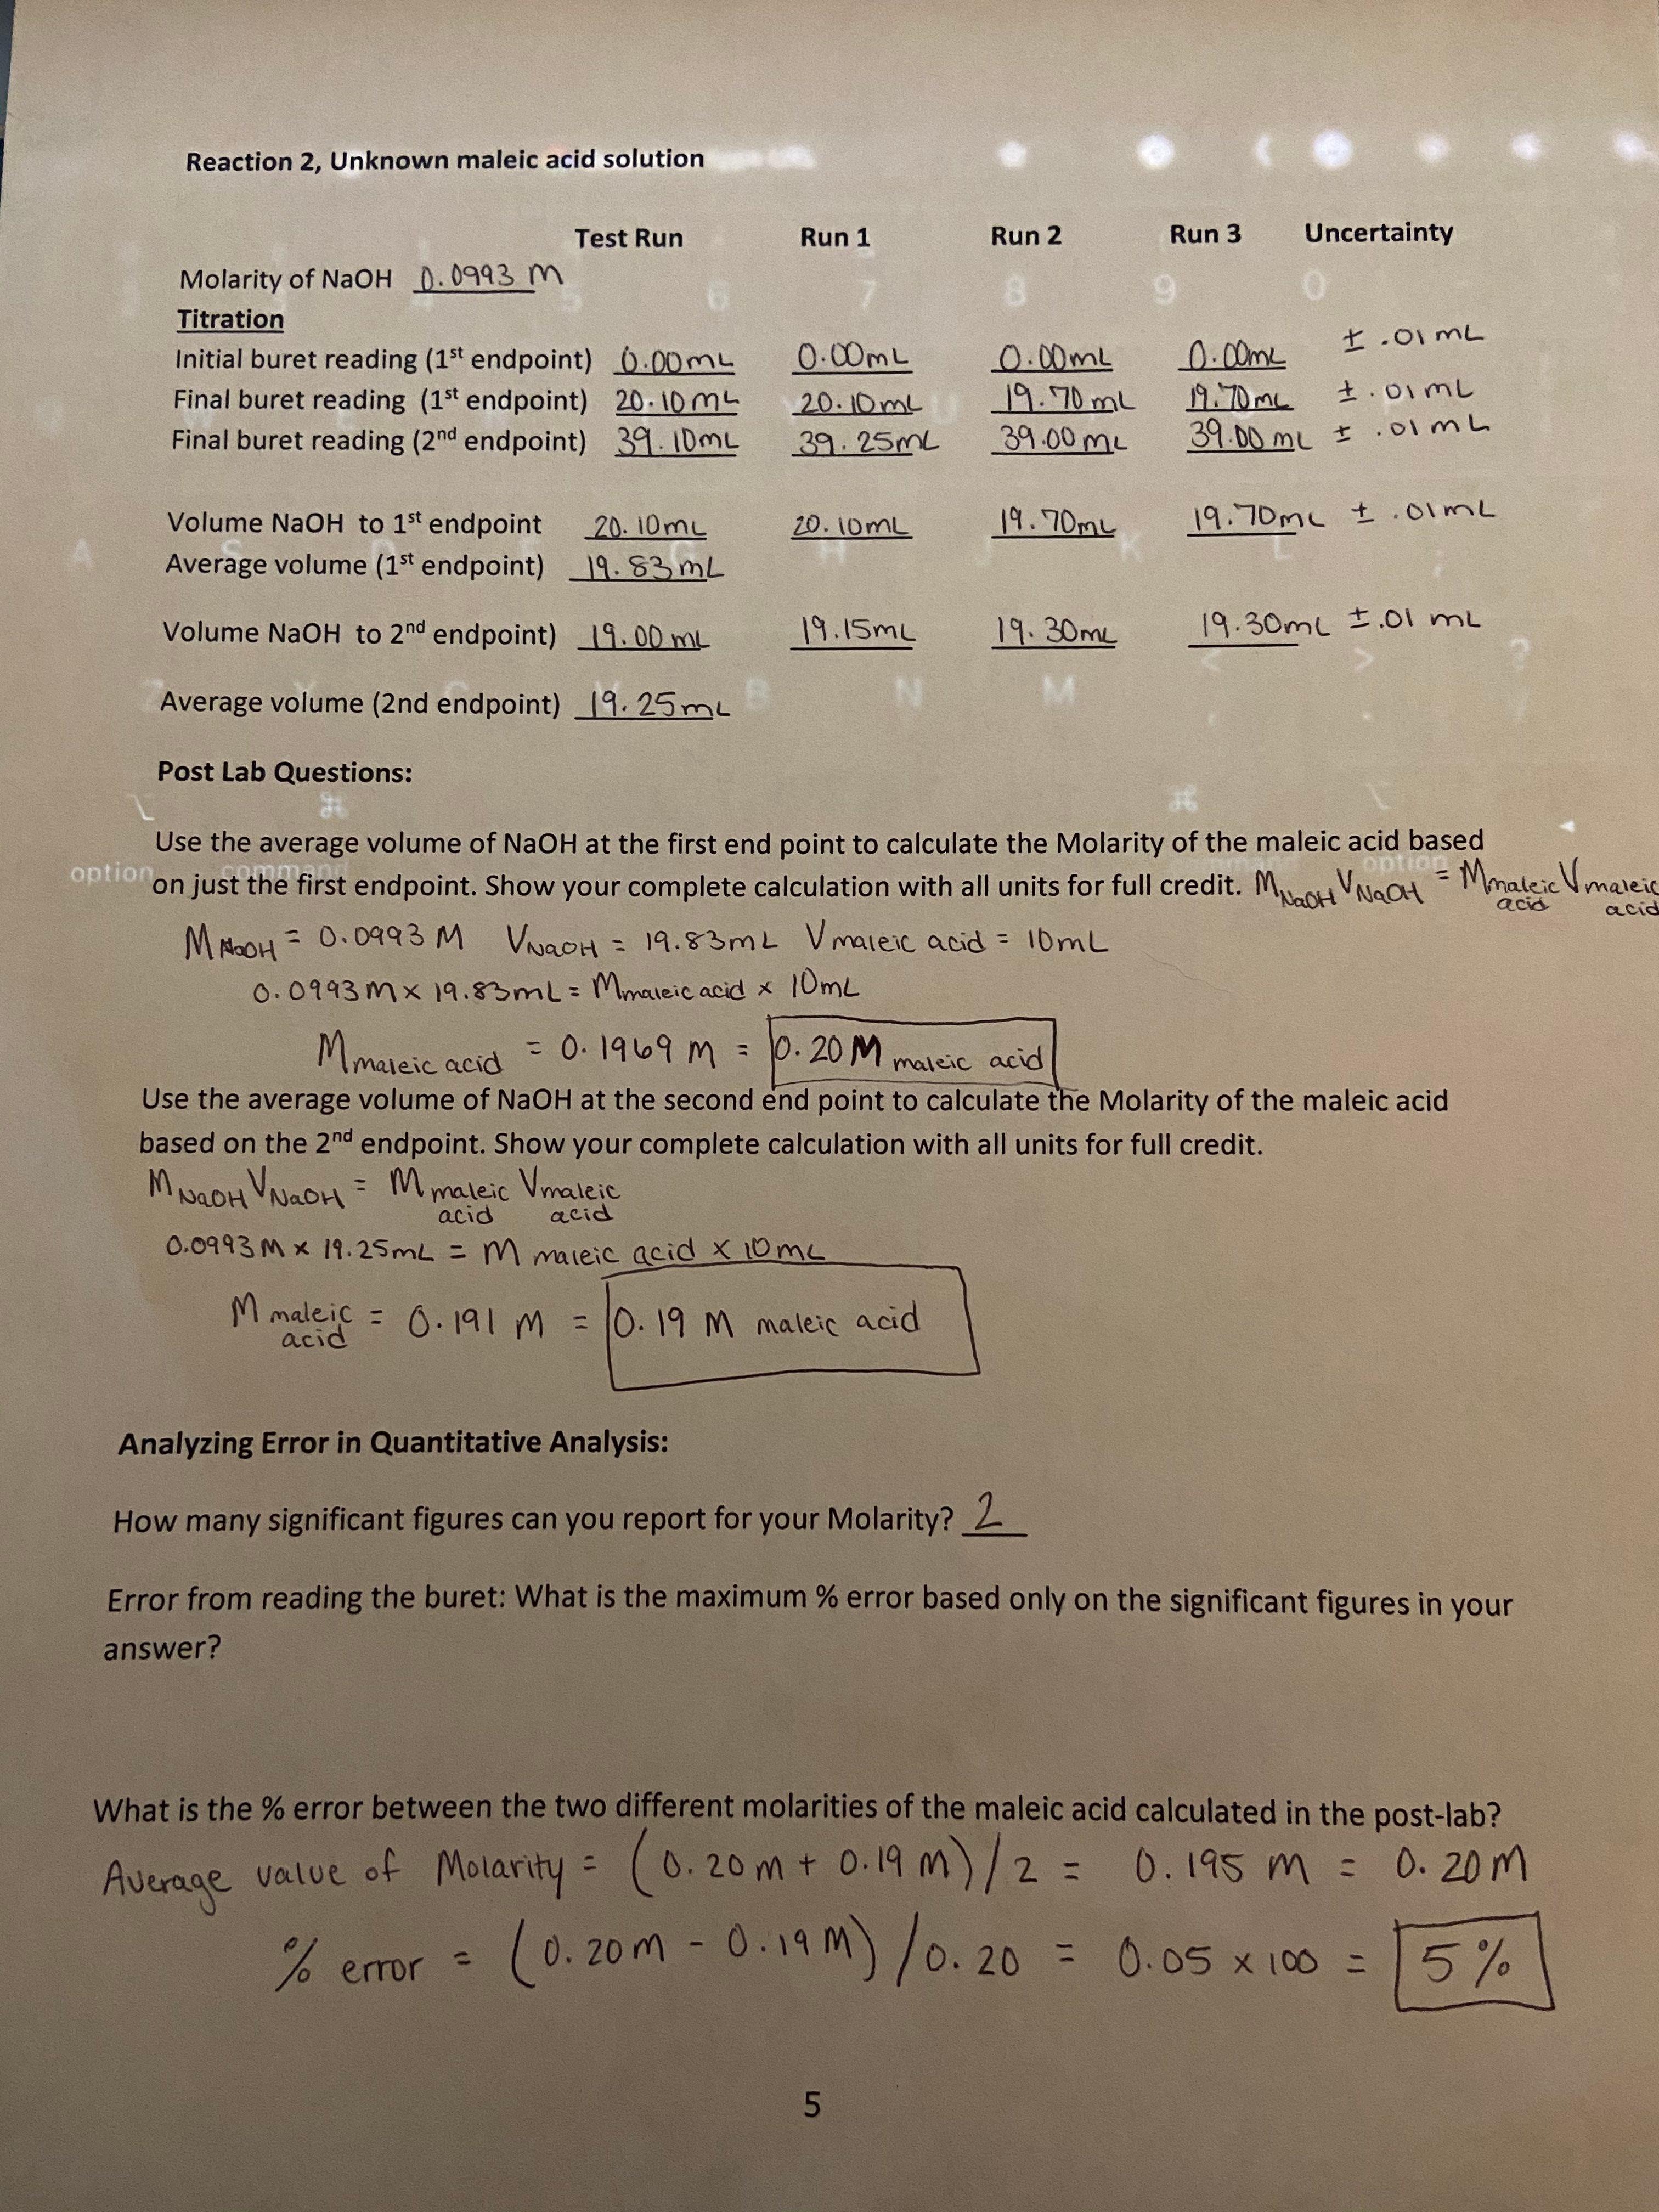 Reaction 2, Unknown maleic acid solution
Test Run Run 1 Run 2 Run 3 Uncertainty
Molarity of NaOH 0.0993 M
Titration
Initial buret reading (1st endpoint) 0.00mL 0.00mL 0.00mL 0.00mL ± .01 mL
Final buret reading (1st endpoint) 20.10mL 20.10mL 19.70mL 19.70mL ± .01mL
Final buret reading (2nd endpoint) 39.10mL 39.25mL 39.00mL 39.00mL ± .01mL
Volume NaOH to 1st endpoint 20.10mL 20.10mL 19.70mL 19.70mL ± .01mL
Average volume (1st endpoint) 19.83mL
Volume NaOH to 2nd endpoint) 19.00mL 19.15mL 19.30mL 19.30mL ±.01 mL
Average volume (2nd endpoint) 19.25mL
Post Lab Questions:
Use the average volume of NaOH at the first end point to calculate the Molarity of the maleic acid based
on just the first endpoint. Show your complete calculation with all units for full credit. M NaOH V NaOH = M maleic acid V maleic acid
M NaOH = 0.0993 M V NaOH = 19.83mL V maleic acid = 10mL
0.0993M x 19.83mL = M maleic acid x 10mL
M maleic acid = 0.1969 M = 0.20 M maleic acid
Use the average volume of NaOH at the second end point to calculate the Molarity of the maleic acid
based on the 2nd endpoint. Show your complete calculation with all units for full credit.
M NaOH V NaOH = M maleic acid V maleic acid
0.0993 M x 19.25mL = M maleic acid x 10mL
M maleic acid = 0.191 M = 0.19 M maleic acid
Analyzing Error in Quantitative Analysis:
How many significant figures can you report for your Molarity? 2
Error from reading the buret: What is the maximum % error based only on the significant figures in your
answer?
What is the % error between the two different molarities of the maleic acid calculated in the post-lab?
Average value of Molarity = (0.20 M + 0.19 M)/2 = 0.195 M = 0.20 M
% error = (0.20 M - 0.19 M)/0.20 = 0.05 x 100 = 5%
5